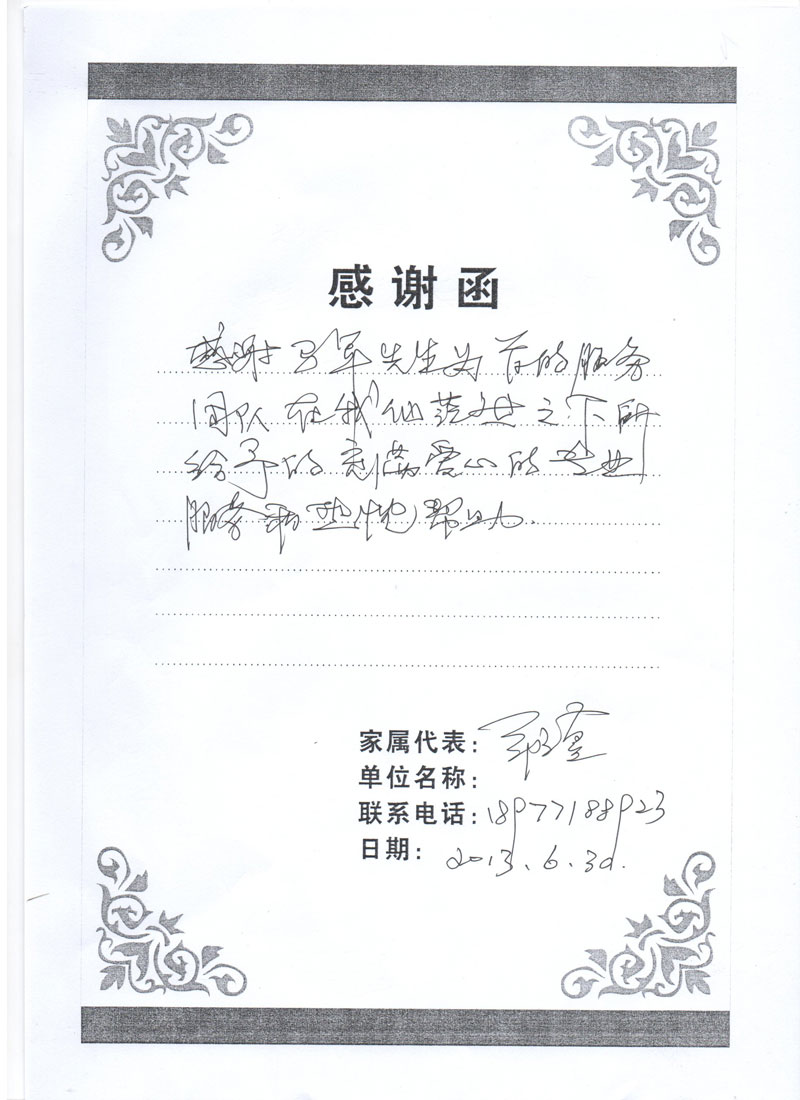 感谢函
感谢卫军先生为首的服务
团队在我仙逝之下所
给予的充满爱心的专业
服务和热忱帮助.
家属代表:
单位名称:
联系电话:18977188923
日期: 2013.6.30.